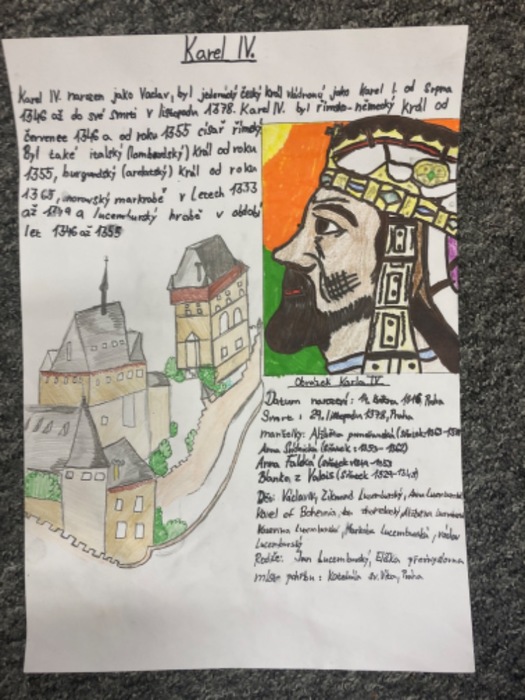 Karel IV.
Karel IV. narozen jako Václav, byl jedenáctý český král vládnoucí jako Karel I. od Srpna
1346 až do své smrti v listopadu 1378. Karel IV. byl římsko-německý král od
července 1346 a od roku 1355 císař římský.
Byl také italský (lombardský) král od roku
1355, burgundský (arelatský) král od roku
1365, moravský markrabě v letech 1333
až 1349 a lucemburský hrabě v období
let 1346 až 1353
Obrázek Karla IV.
Datum narození: 14. května 1316 Praha
Smrt: 29. listopadu 1378, Praha
manželky: Alžběta pomořanská
Anna Svídnická
Anna Falcká
Blanka z Valois (Sňatek 1329-1348)
Děti: Václav IV, Zikmund Lucemburský, Anna Lucemburská
Karel of Bohemia, Jan zhořelecký, Alžběta
Kateřina Lucemburská, Markéta Lucemburská, Václav
Lucemburský
Rodiče: Jan Lucemburský, Eliška přemyslovna
místo pohřbu: Katedrála sv. Víta, Praha